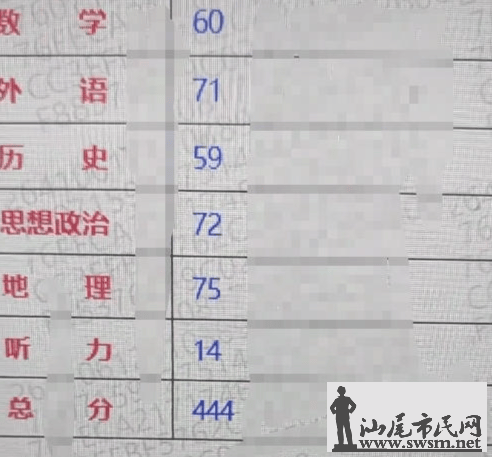 数 学 60
外 语 71
历 史 59
思想政治 72
地 理 75
听 力 14
总 分 444
汕尾市民网
www.swsm.net